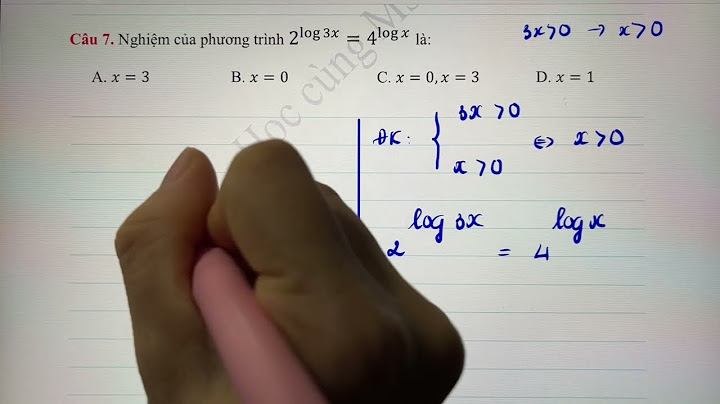 Câu 7. Nghiệm của phương trình 2^{log 3x} = 4^{log x} là:
3x>0 → x>0
A. x = 3 B. x = 0 C. x = 0, x = 3 D. x = 1
Học cùng Ms
ĐK: { 3x>0
x>0 ⇔ x>0
2^{log 3x} = 4^{log x}